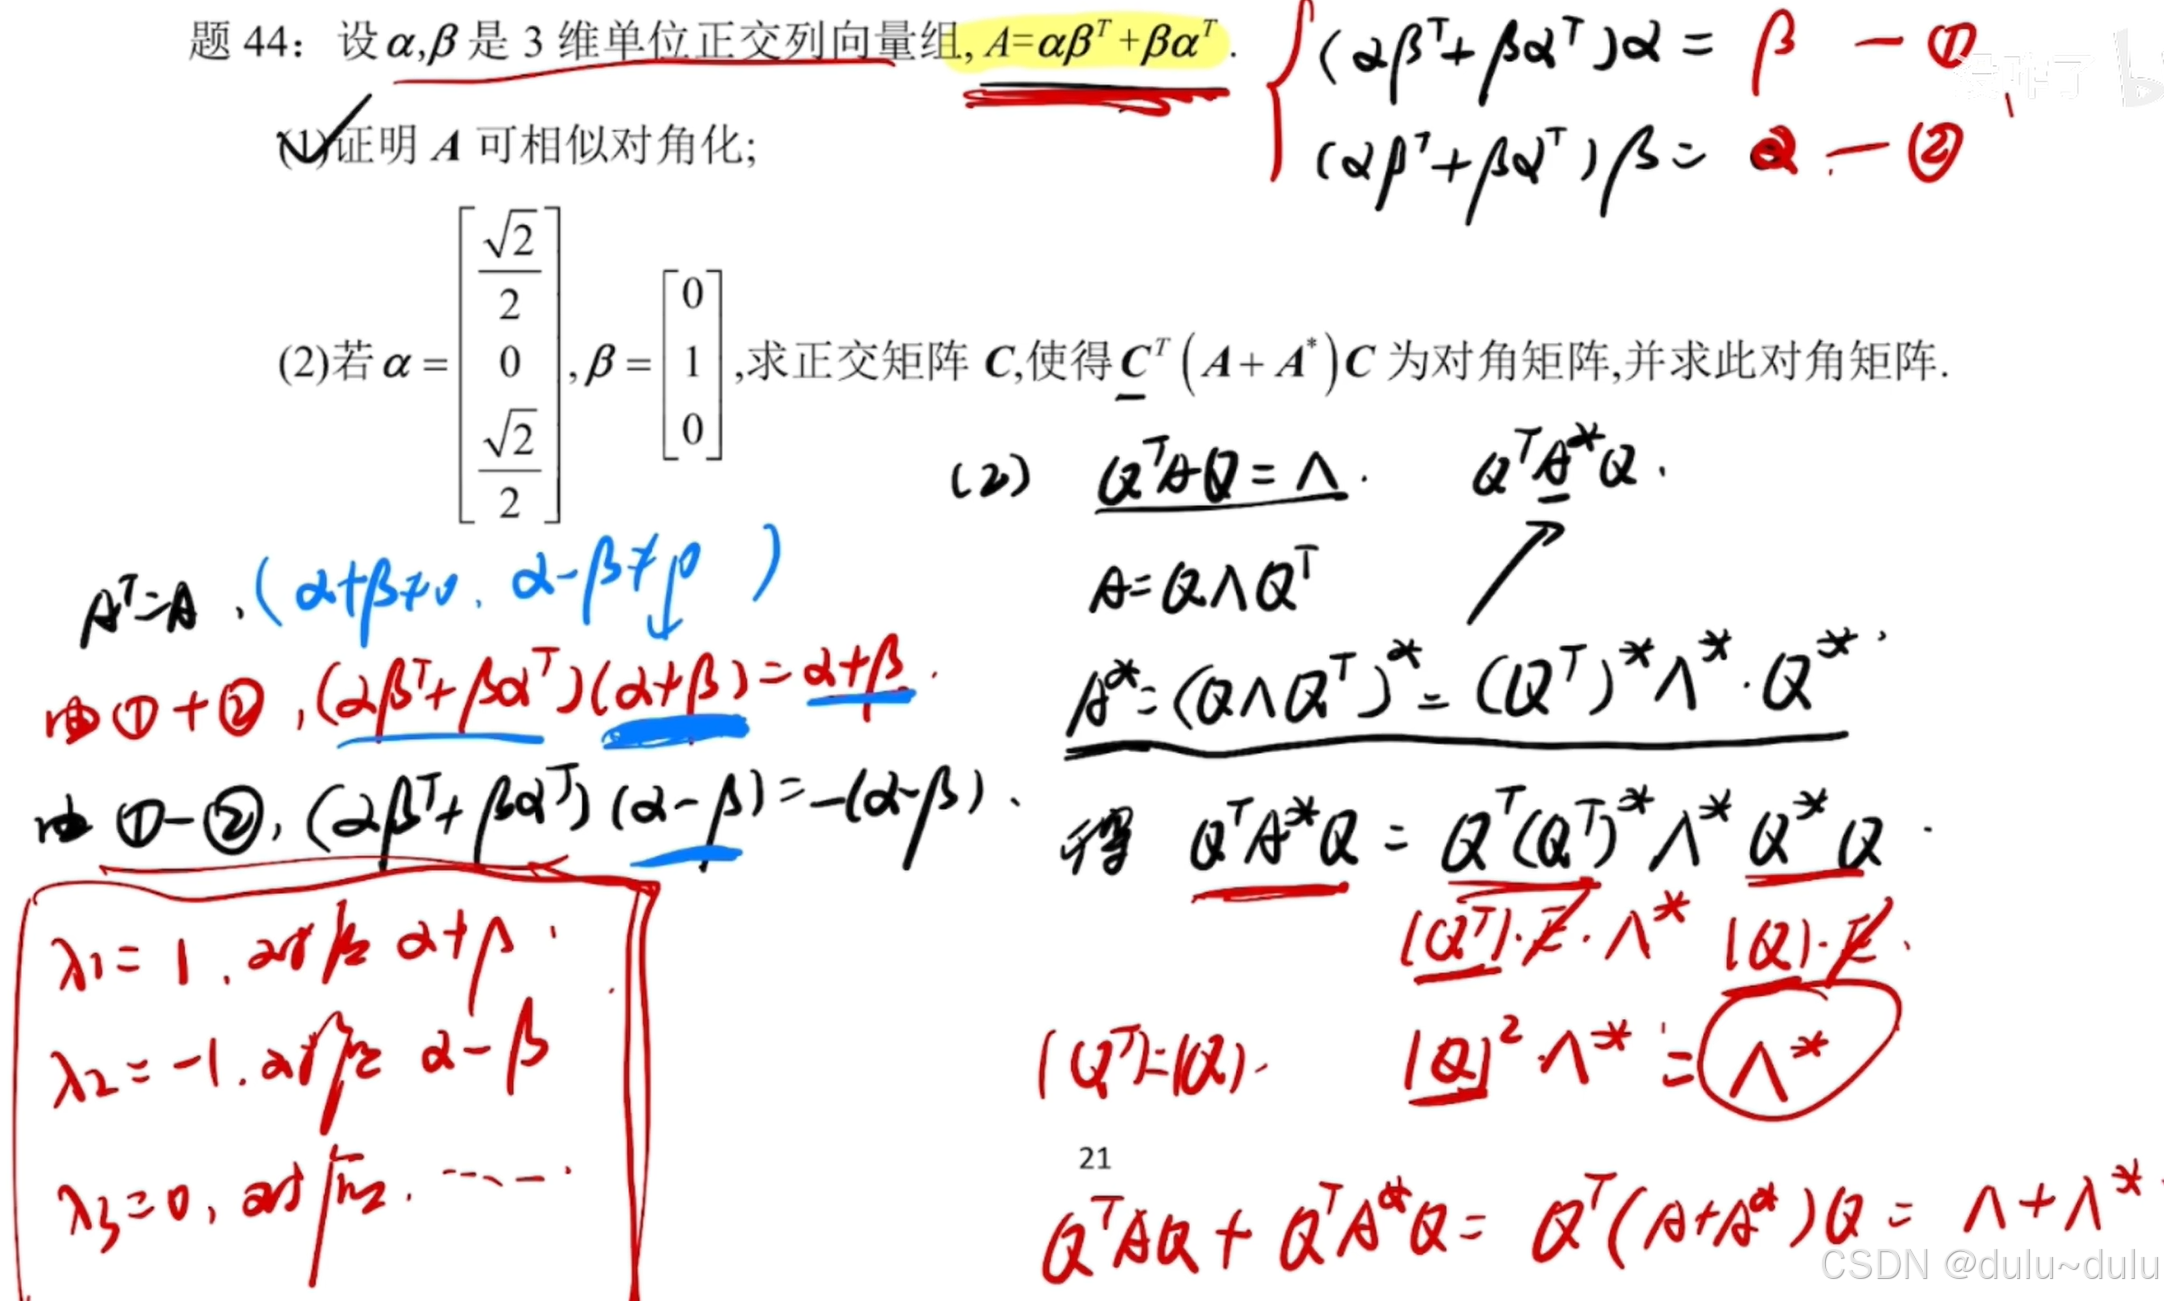 题 44：设 α,β 是 3 维单位正交列向量组, A=αβᵀ+βαᵀ.
(αβᵀ+βαᵀ)α = β — ①
(αβᵀ+βαᵀ)β = α — ②
(1)证明 A 可相似对角化;
(2)若 α = [√2/2 0 √2/2], β = [0 1 0], 求正交矩阵 C,使得 Cᵀ(A+A*)C 为对角矩阵,并求此对角矩阵.
Aᵀ=A, (α+β≠0, α-β≠0)
由 ①+②, (αβᵀ+βαᵀ)(α+β)=α+β.
由 ①-②, (αβᵀ+βαᵀ)(α-β)=-(α-β).
λ1=1, 对应 α+β.
λ2=-1. 对应 α-β
λ3=0, 对应. ……
(2) QᵀAQ=Λ. QᵀA*Q.
A=QΛQᵀ
A*=(QΛQᵀ)*=(Qᵀ)*Λ*·Q*.
得 QᵀA*Q = Qᵀ(Qᵀ)*Λ*Q*Q.
|Qᵀ|·E·Λ*|Q|·E.
|Qᵀ|=|Q|. |Q|²·Λ* = Λ*
21
QᵀAQ+QᵀA*Q=Qᵀ(A+A*)Q=Λ+Λ*
CSDN @dulu~dulu